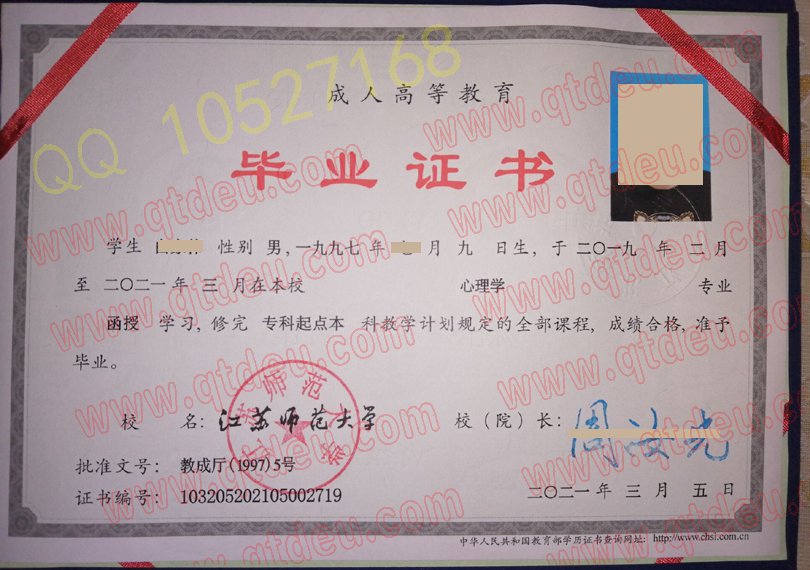 成人高等教育
毕业证书
QQ 10527168
www.qtdeu.com
学生 性别 男，一九九七 年 月 九 日生，于 二〇一九 年 二 月
至 二〇二一 年 三 月在本校 心理学 专业
函授 学习，修完 专科起点本 科教学计划规定的全部课程，成绩合格，准予
毕业。
校 名：江苏师范大学 校（院）长：周汝光
批准文号：教成厅(1997)5号
证书编号：103205202105002719 二〇二一 年 三 月 五 日
中华人民共和国教育部学历证书查询网址：http://www.chsi.com.cn